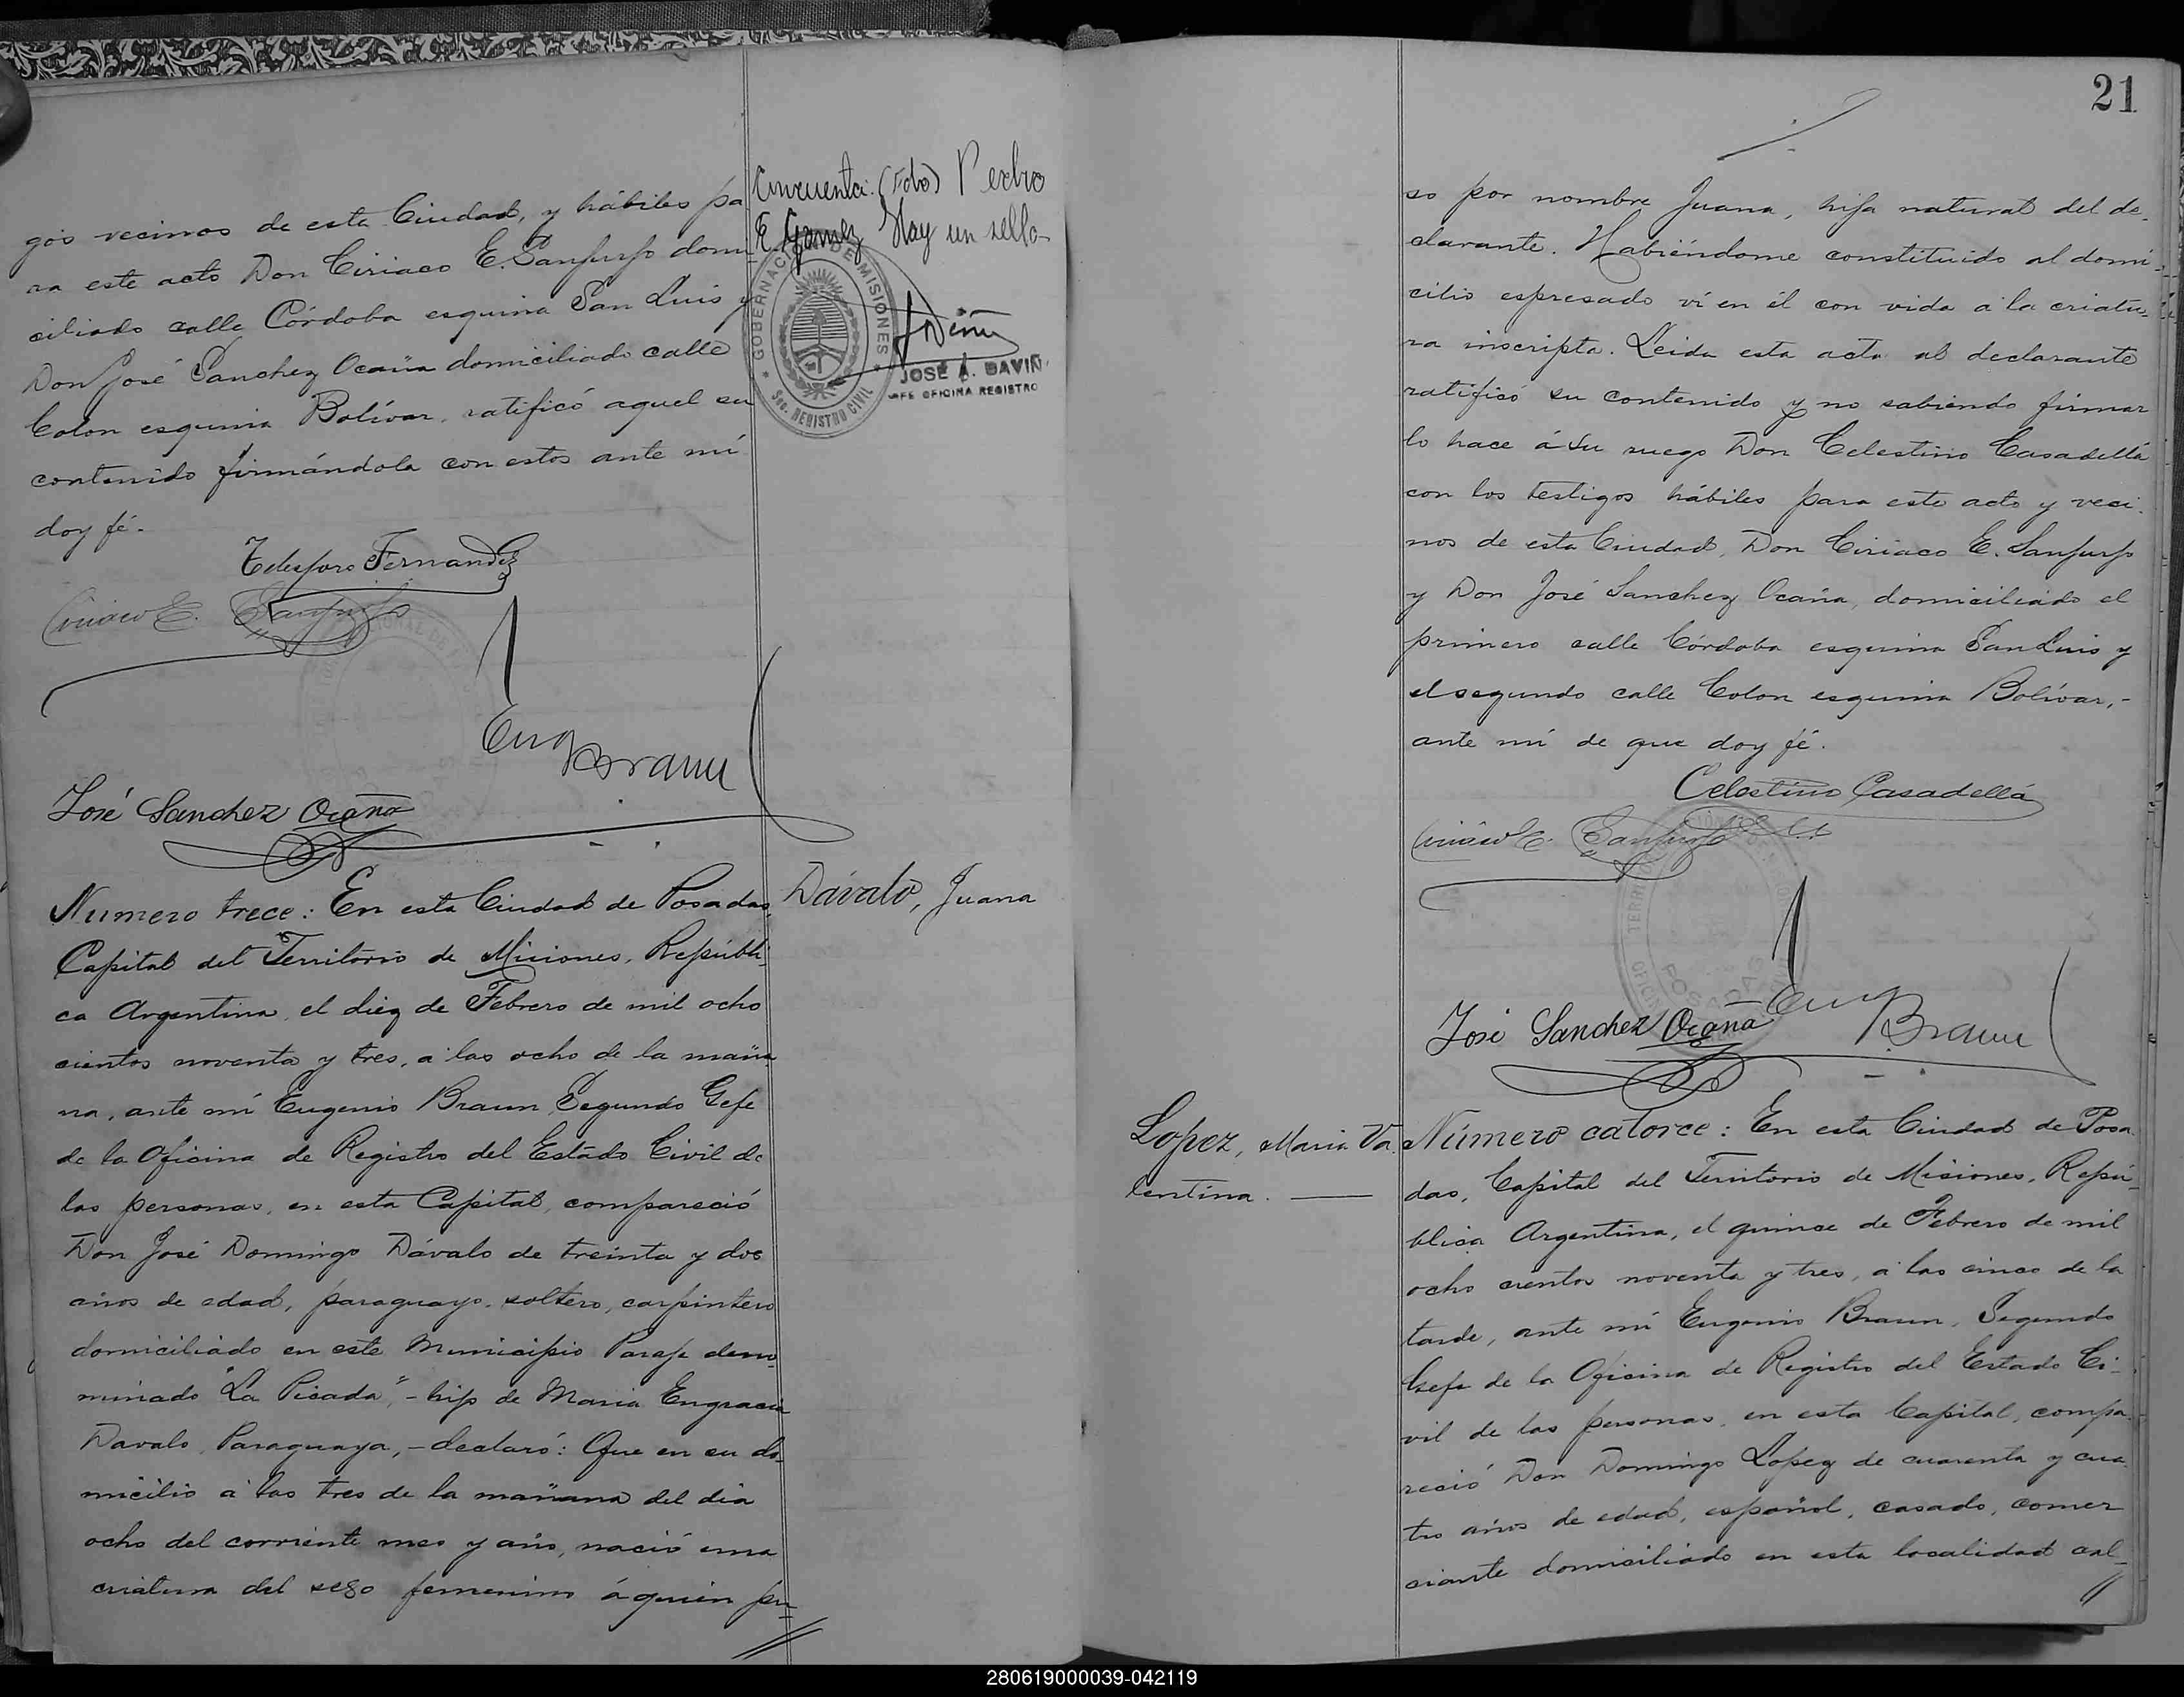 gos vecinos de esta Ciudad, y hábiles pa
ra este acto Don Ciriaco E. Sanjurjo domi-
ciliado calle Córdoba esquina San Luis y
Don José Sanchez Ocaña domiciliado calle
Colon esquina Bolívar, ratificó aquel su
contenido firmándola con estos ante mí
doy fé.-
Telesforo Fernandez
Ciriaco E. Sanjurjo
Eug Braun
José Sanchez Ocaña
Cincuenta. (Fdo) Pedro
E. Gamez Hay un sello-
GOBERNACION DE MISIONES
Sec. REGISTRO CIVIL
JOSÉ A. DAVIÑ
JEFE OFICINA REGISTRO
Dávalo, Juana
Numero trece: En esta Ciudad de Posadas,
Capital del Territorio de Misiones, Repúbli-
ca Argentina, el diez de Febrero de mil ocho
cientos noventa y tres, a las ocho de la maña
na, ante mí Eugenio Braun, Segundo Gefe
de la Oficina de Registro del Estado Civil de
las personas, en esta Capital, compareció
Don José Domingo Dávalo de treinta y dos
años de edad, paraguayo, soltero, carpintero
domiciliado en este Municipio Paraje deno-
minado "La Picada",- hijo de Maria Engracia
Davalo, Paraguaya,- declaró: Que en su do-
micilio a las tres de la mañana del dia
ocho del corriente mes y año, nació una
criatura del sexo femenino á quien pu-
21
so por nombre Juana, hija natural del de-
clarante. Habiéndome constituido al domi-
cilio espresado ví en él con vida a la criatu-
ra inscripta. Leida esta acta al declarante
ratificó su contenido y no sabiendo firmar
lo hace á su ruego Don Celestino Casadellá
con los testigos hábiles para este acto y veci-
nos de esta Ciudad, Don Ciriaco E. Sanjurjo
y Don José Sanchez Ocaña, domiciliado el
primero calle Córdoba esquina San Luis y
el segundo calle Colon esquina Bolívar,-
ante mí de que doy fé.
Celestino Casadellá
Ciriaco E. Sanjurjo
Eug Braun
José Sanchez Ocaña
Lopez, Maria Va-
lentina.
Número catorce: En esta Ciudad de Posa
das, Capital del Territorio de Misiones, Repú-
blica Argentina, el quince de Febrero de mil
ocho cientos noventa y tres, a las cinco de la
tarde, ante mí Eugenio Braun, Segundo
Gefe de la Oficina de Registro del Estado Ci-
vil de las personas, en esta Capital, compa-
reció Don Domingo Lopez de cuarenta y cua
tro años de edad, español, casado, comer
ciante domiciliado en esta localidad cal-
280619000039-042119